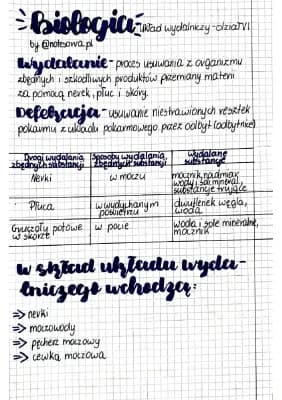 Biologia - układ wydalniczy - dział VI
by @notesowa.pl
Wydalanie - proces usuwania z organizmu
zbędnych i szkodliwych produktów przemiany materii
za pomocą nerek, płuc i skóry.
Defekacja - usuwanie niestrawionych resztek
pokarmu z układu pokarmowego przez odbyt (odbytnicę)
Drogi wydalania zbędnych substancji | Sposoby wydalania zbędnych substancji | Wydalane substancje
Nerki | w moczu | mocznik, nadmiar wody i soli mineral., substancje trujące
Płuca | w wydychanym powietrzu | dwutlenek węgla, woda
Gruczoły potowe w skórze | w pocie | woda i sole mineralne, mocznik
W skład układu wyda-
lniczego wchodzą:
⇒ nerki
⇒ moczowody
⇒ pęcherz moczowy
⇒ cewka moczowa